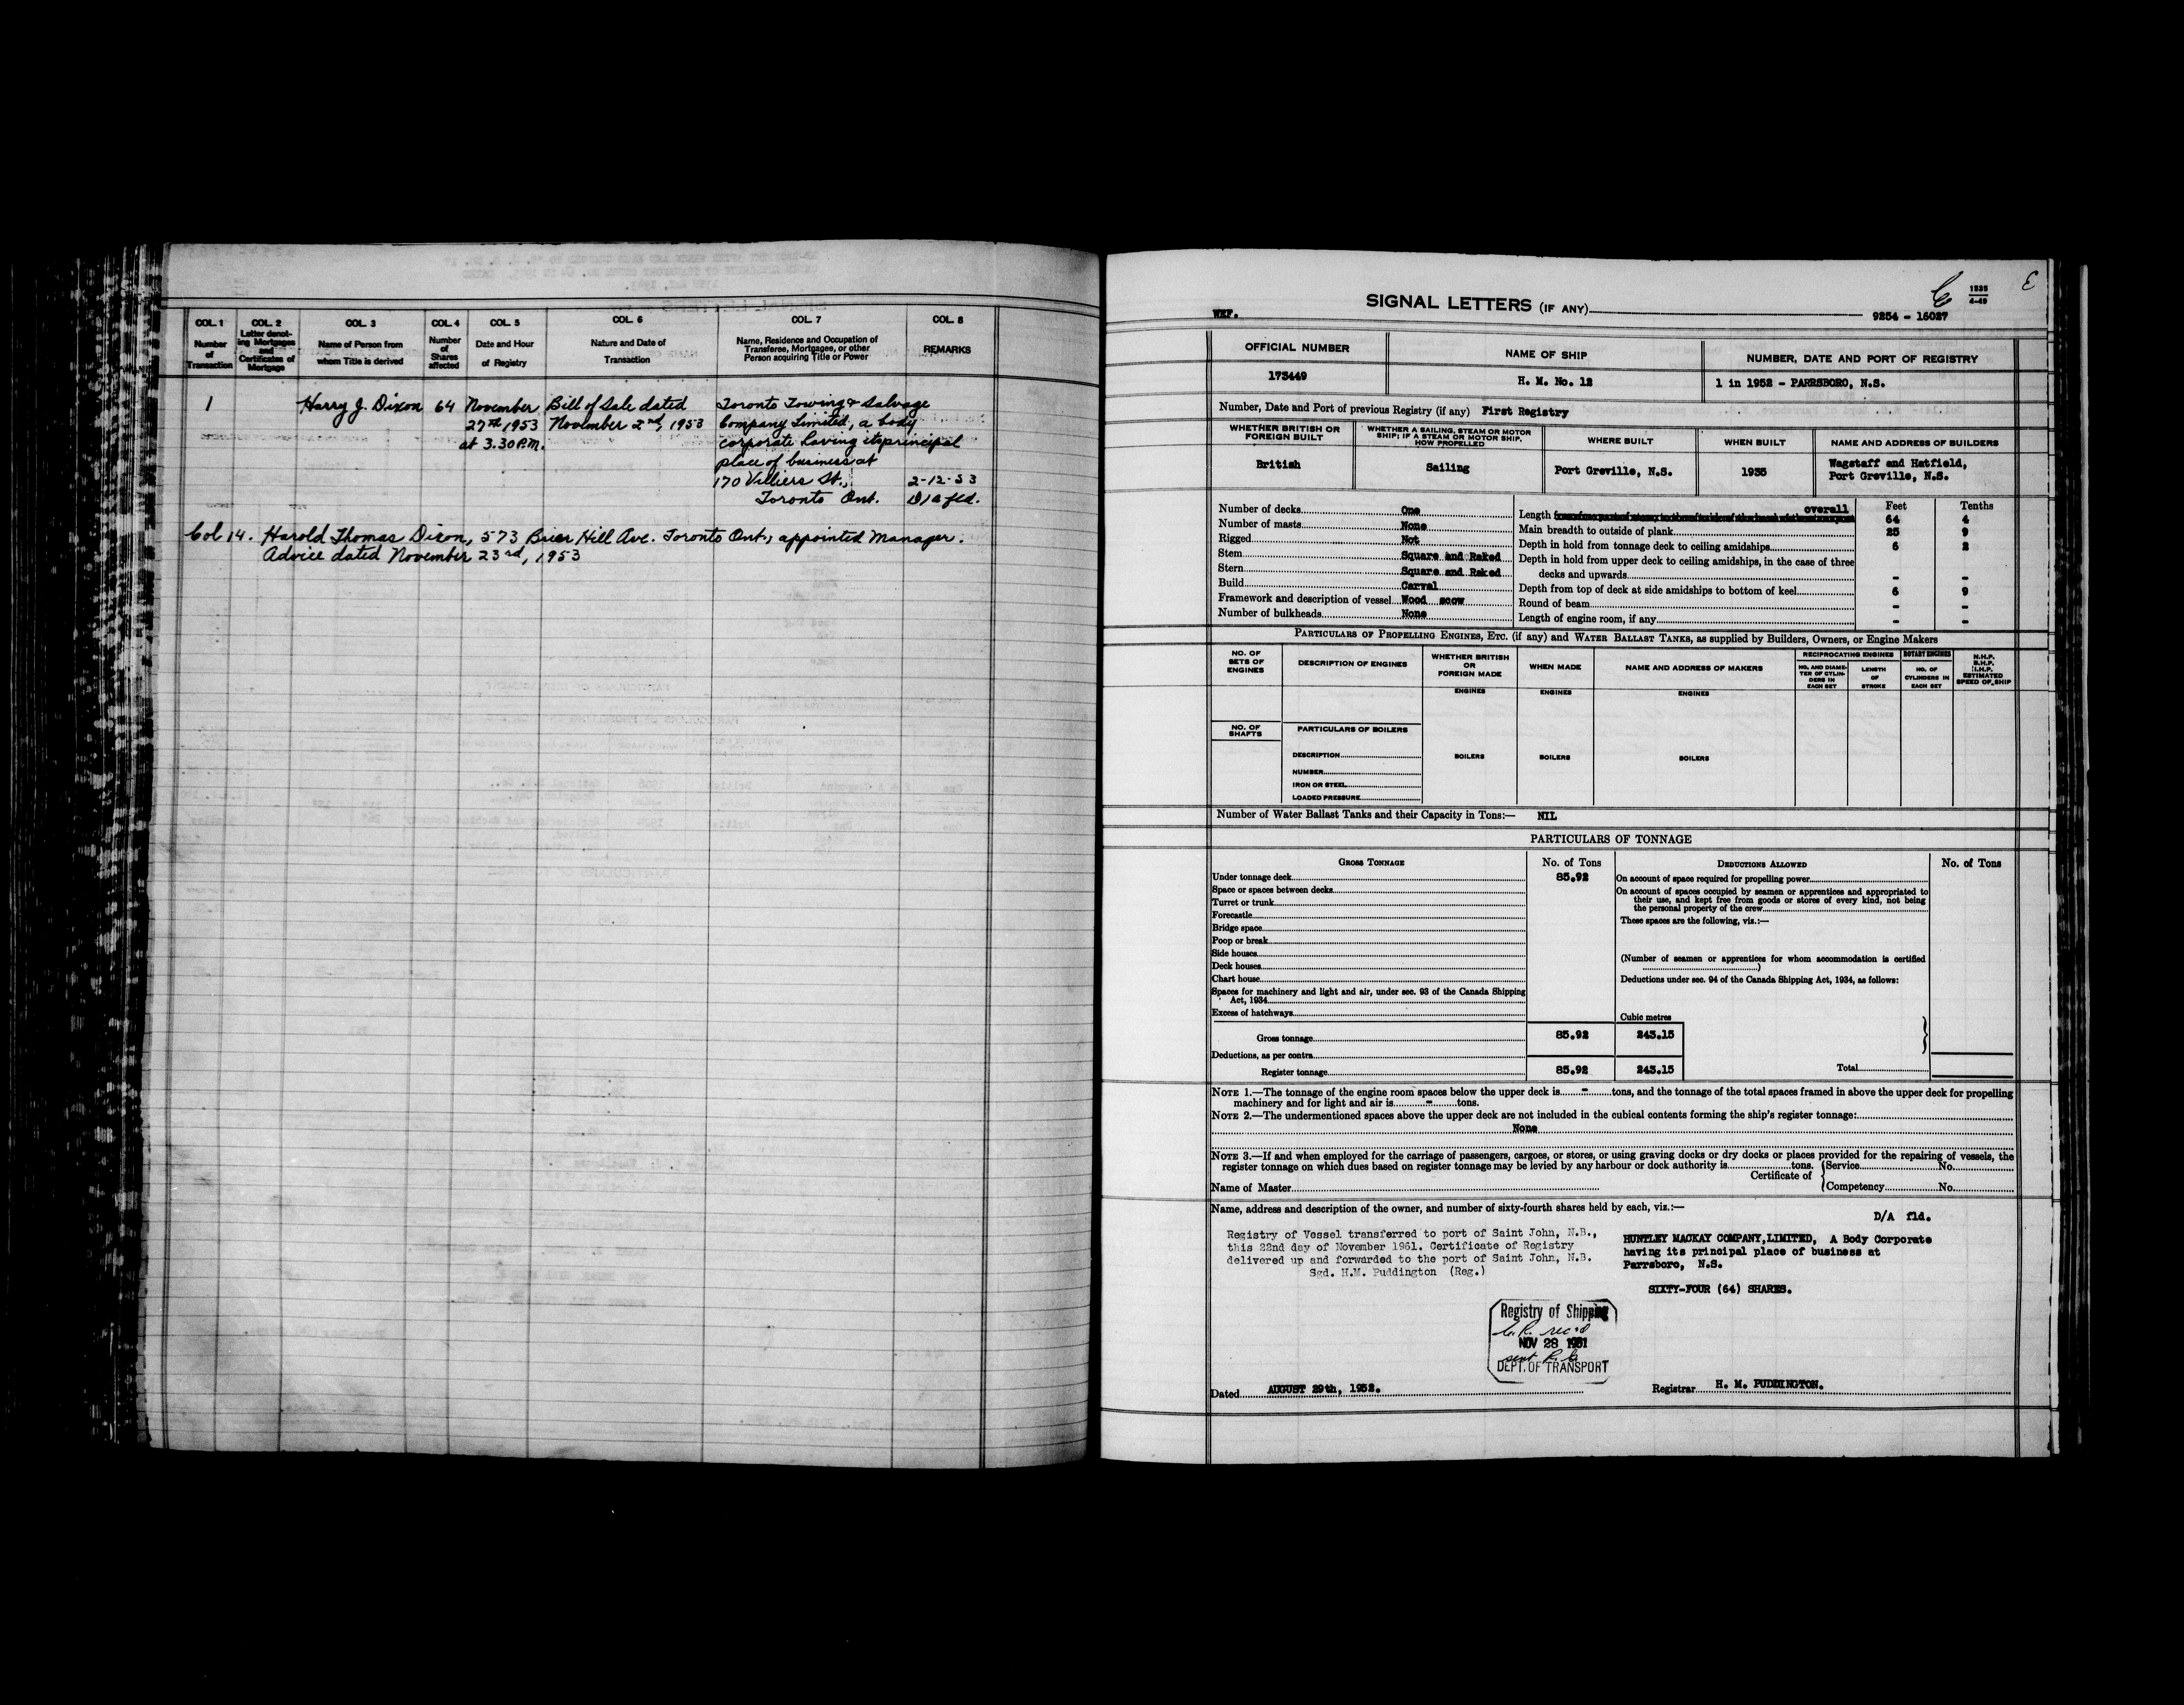 COL. 1 COL. 2 COL. 3 COL. 4 COL. 5 COL. 6 COL. 7 COL. 8
Number of Transaction
Letter denoting Mortgages and Certificates of Mortgage
Name of Person from whom Title is derived
Number of Shares affected
Date and Hour of Registry
Nature and Date of Transaction
Name, Residence and Occupation of Transferee, Mortgagee, or other Person acquiring Title or Power
REMARKS
1 Harry J. Dixon 64 November Bill of Sale dated Toronto Towing & Salvage
27th 1953 November 2nd, 1953 Company Limited, a body
at 3.30 P.M. corporate having its principal
place of business at
170 Villiers St., 2-12-53
Toronto Ont. D/A fld.
Col 14. Harold Thomas Dixon, 573 Briar Hill Ave. Toronto Ont., appointed Manager.
Advice dated November 23rd, 1953
E
1525
4-49
SIGNAL LETTERS (IF ANY)
WKF. 9254 - 16027
OFFICIAL NUMBER NAME OF SHIP NUMBER, DATE AND PORT OF REGISTRY
173449 H. M. No. 12 1 in 1952 - PARRSBORO, N.S.
Number, Date and Port of previous Registry (if any) First Registry
WHETHER BRITISH OR FOREIGN BUILT
WHETHER A SAILING, STEAM OR MOTOR SHIP; IF A STEAM OR MOTOR SHIP, HOW PROPELLED
WHERE BUILT WHEN BUILT NAME AND ADDRESS OF BUILDERS
British Sailing Port Greville, N.S. 1935 Wagstaff and Hatfield,
Port Greville, N.S.
Feet Tenths
Number of decks One
Number of masts None
Rigged Not
Stem Square and Raked
Stern Square and Raked
Build Carvel
Framework and description of vessel Wood scow
Number of bulkheads None
Length overall 64 4
Main breadth to outside of plank 25 9
Depth in hold from tonnage deck to ceiling amidships 6 2
Depth in hold from upper deck to ceiling amidships, in the case of three
decks and upwards - -
Depth from top of deck at side amidships to bottom of keel 6 9
Round of beam - -
Length of engine room, if any - -
PARTICULARS OF PROPELLING ENGINES, ETC. (if any) and WATER BALLAST TANKS, as supplied by Builders, Owners, or Engine Makers
NO. OF SETS OF ENGINES
DESCRIPTION OF ENGINES
WHETHER BRITISH OR FOREIGN MADE
WHEN MADE
NAME AND ADDRESS OF MAKERS
RECIPROCATING ENGINES
NO. AND DIAMETER OF CYLINDERS IN EACH SET
LENGTH OF STROKE
ROTARY ENGINES
NO. OF CYLINDERS IN EACH SET
N.H.P.
B.H.P.
I.H.P.
ESTIMATED SPEED OF SHIP
ENGINES ENGINES ENGINES
NO. OF SHAFTS
PARTICULARS OF BOILERS
DESCRIPTION
NUMBER
IRON OR STEEL
LOADED PRESSURE
BOILERS BOILERS BOILERS
Number of Water Ballast Tanks and their Capacity in Tons:— NIL
PARTICULARS OF TONNAGE
GROSS TONNAGE No. of Tons DEDUCTIONS ALLOWED No. of Tons
Under tonnage deck 85.92
Space or spaces between decks
Turret or trunk
Forecastle
Bridge space
Poop or break
Side houses
Deck houses
Chart house
Spaces for machinery and light and air, under sec. 93 of the Canada Shipping
Act, 1934
Excess of hatchways
Cubic metres
Gross tonnage 85.92 243.15
Deductions, as per contra
Register tonnage 85.92 243.15
On account of space required for propelling power
On account of spaces occupied by seamen or apprentices and appropriated to
their use, and kept free from goods or stores of every kind, not being
the personal property of the crew
These spaces are the following, viz.:—
(Number of seamen or apprentices for whom accommodation is certified
)
Deductions under sec. 94 of the Canada Shipping Act, 1934, as follows:
Total
NOTE 1.—The tonnage of the engine room spaces below the upper deck is - tons, and the tonnage of the total spaces framed in above the upper deck for propelling
machinery and for light and air is - tons.
NOTE 2.—The undermentioned spaces above the upper deck are not included in the cubical contents forming the ship's register tonnage:
None
NOTE 3.—If and when employed for the carriage of passengers, cargoes, or stores, or using graving docks or dry docks or places provided for the repairing of vessels, the
register tonnage on which dues based on register tonnage may be levied by any harbour or dock authority is tons.
Name of Master
Certificate of
Service No.
Competency No.
Name, address and description of the owner, and number of sixty-fourth shares held by each, viz.:—
D/A fld.
Registry of Vessel transferred to port of Saint John, N.B.,
this 22nd day of November 1961. Certificate of Registry
delivered up and forwarded to the port of Saint John, N.B.
Sgd. H.M. Puddington (Reg.)
HUNTLEY MACKAY COMPANY, LIMITED, A Body Corporate
having its principal place of business at
Parrsboro, N.S.
SIXTY-FOUR (64) SHARES.
Registry of Shipping
C.R. rec'd
NOV 28 1961
sent
DEPT. OF TRANSPORT
Dated AUGUST 29th, 1952.
Registrar H. M. PUDDINGTON.